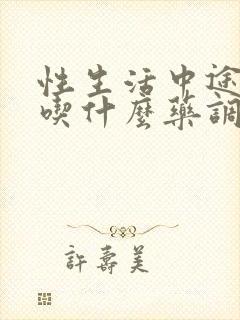 性生活中途
喫什麼藥調
許壽美